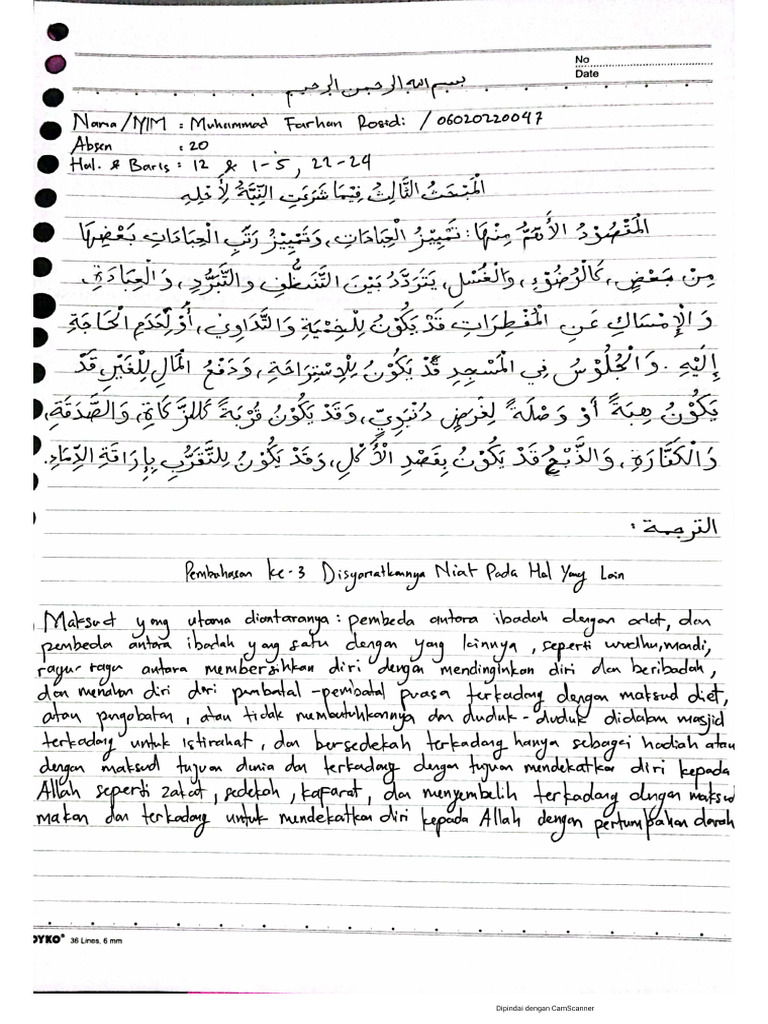 No
Date
بسم الله الرحمن الرحيم
Nama/NIM : Muhammad Farhan Rosidi / 06020220047
Absen : 20
Hal. & Baris : 12 & 1-5, 22-24
الْمَبْحَثُ الثَّالِثُ فِيْمَا شُرِعَتِ النِّيَّةُ لِأَجْلِهِ
الْمَقْصُوْدُ الْأَهَمُّ مِنْهَا: تَمْيِيْزُ الْعِبَادَاتِ، وَتَمْيِيْزُ رُتَبِ الْعِبَادَاتِ بَعْضِهَا
مِنْ بَعْضٍ، كَالْوُضُوْءِ، وَالْغُسْلِ، يَتَرَدَّدُ بَيْنَ التَّنَظُّفِ وَالتَّبَرُّدِ، وَالْعِبَادَةِ،
وَالْإِمْسَاكِ عَنِ الْمُفْطِرَاتِ قَدْ يَكُوْنُ لِلْحِمْيَةِ وَالتَّدَاوِيْ، أَوْ لِعَدَمِ الْحَاجَةِ
إِلَيْهِ. وَالْجُلُوْسُ فِي الْمَسْجِدِ قَدْ يَكُوْنُ لِلْاِسْتِرَاحَةِ، وَدَفْعُ الْمَالِ لِلْغَيْرِ، قَدْ
يَكُوْنُ هِبَةً أَوْ وَصْلَةً لِغَرَضٍ دُنْيَوِيٍّ، وَقَدْ يَكُوْنُ قُرْبَةً كَالزَّكَاةِ، وَالصَّدَقَةِ،
وَالْكَفَّارَةِ، وَالذَّبْحُ قَدْ يَكُوْنُ بِقَصْدِ الْأَكْلِ، وَقَدْ يَكُوْنُ لِلتَّقَرُّبِ بِإِرَاقَةِ الدِّمَاءِ.
الترجمة :
Pembahasan ke-3 Disyariatkannya Niat Pada Hal Yang Lain
Maksud yang utama diantaranya : pembeda antara ibadah dengan adat, dan
pembeda antara ibadah yang satu dengan yang lainnya, seperti wudhu, mandi,
ragu-ragu antara membersihkan diri dengan mendinginkan diri dan beribadah,
dan menahan diri dari pembatal-pembatal puasa terkadang dengan maksud diet,
atau pngobatan, atau tidak membutuhkannya dan duduk-duduk didalam masjid
terkadang untuk istirahat, dan bersedekah terkadang hanya sebagai hadiah atau
dengan maksud tujuan dunia dan terkadang dengan tujuan mendekatkan diri kepada
Allah seperti zakat, sedekah, kafarat, dan menyembelih terkadang dengan maksud
makan dan terkadang untuk mendekatkan diri kepada Allah dengan pertumpahan darah
OYKO® 36 Lines, 6 mm
Dipindai dengan CamScanner